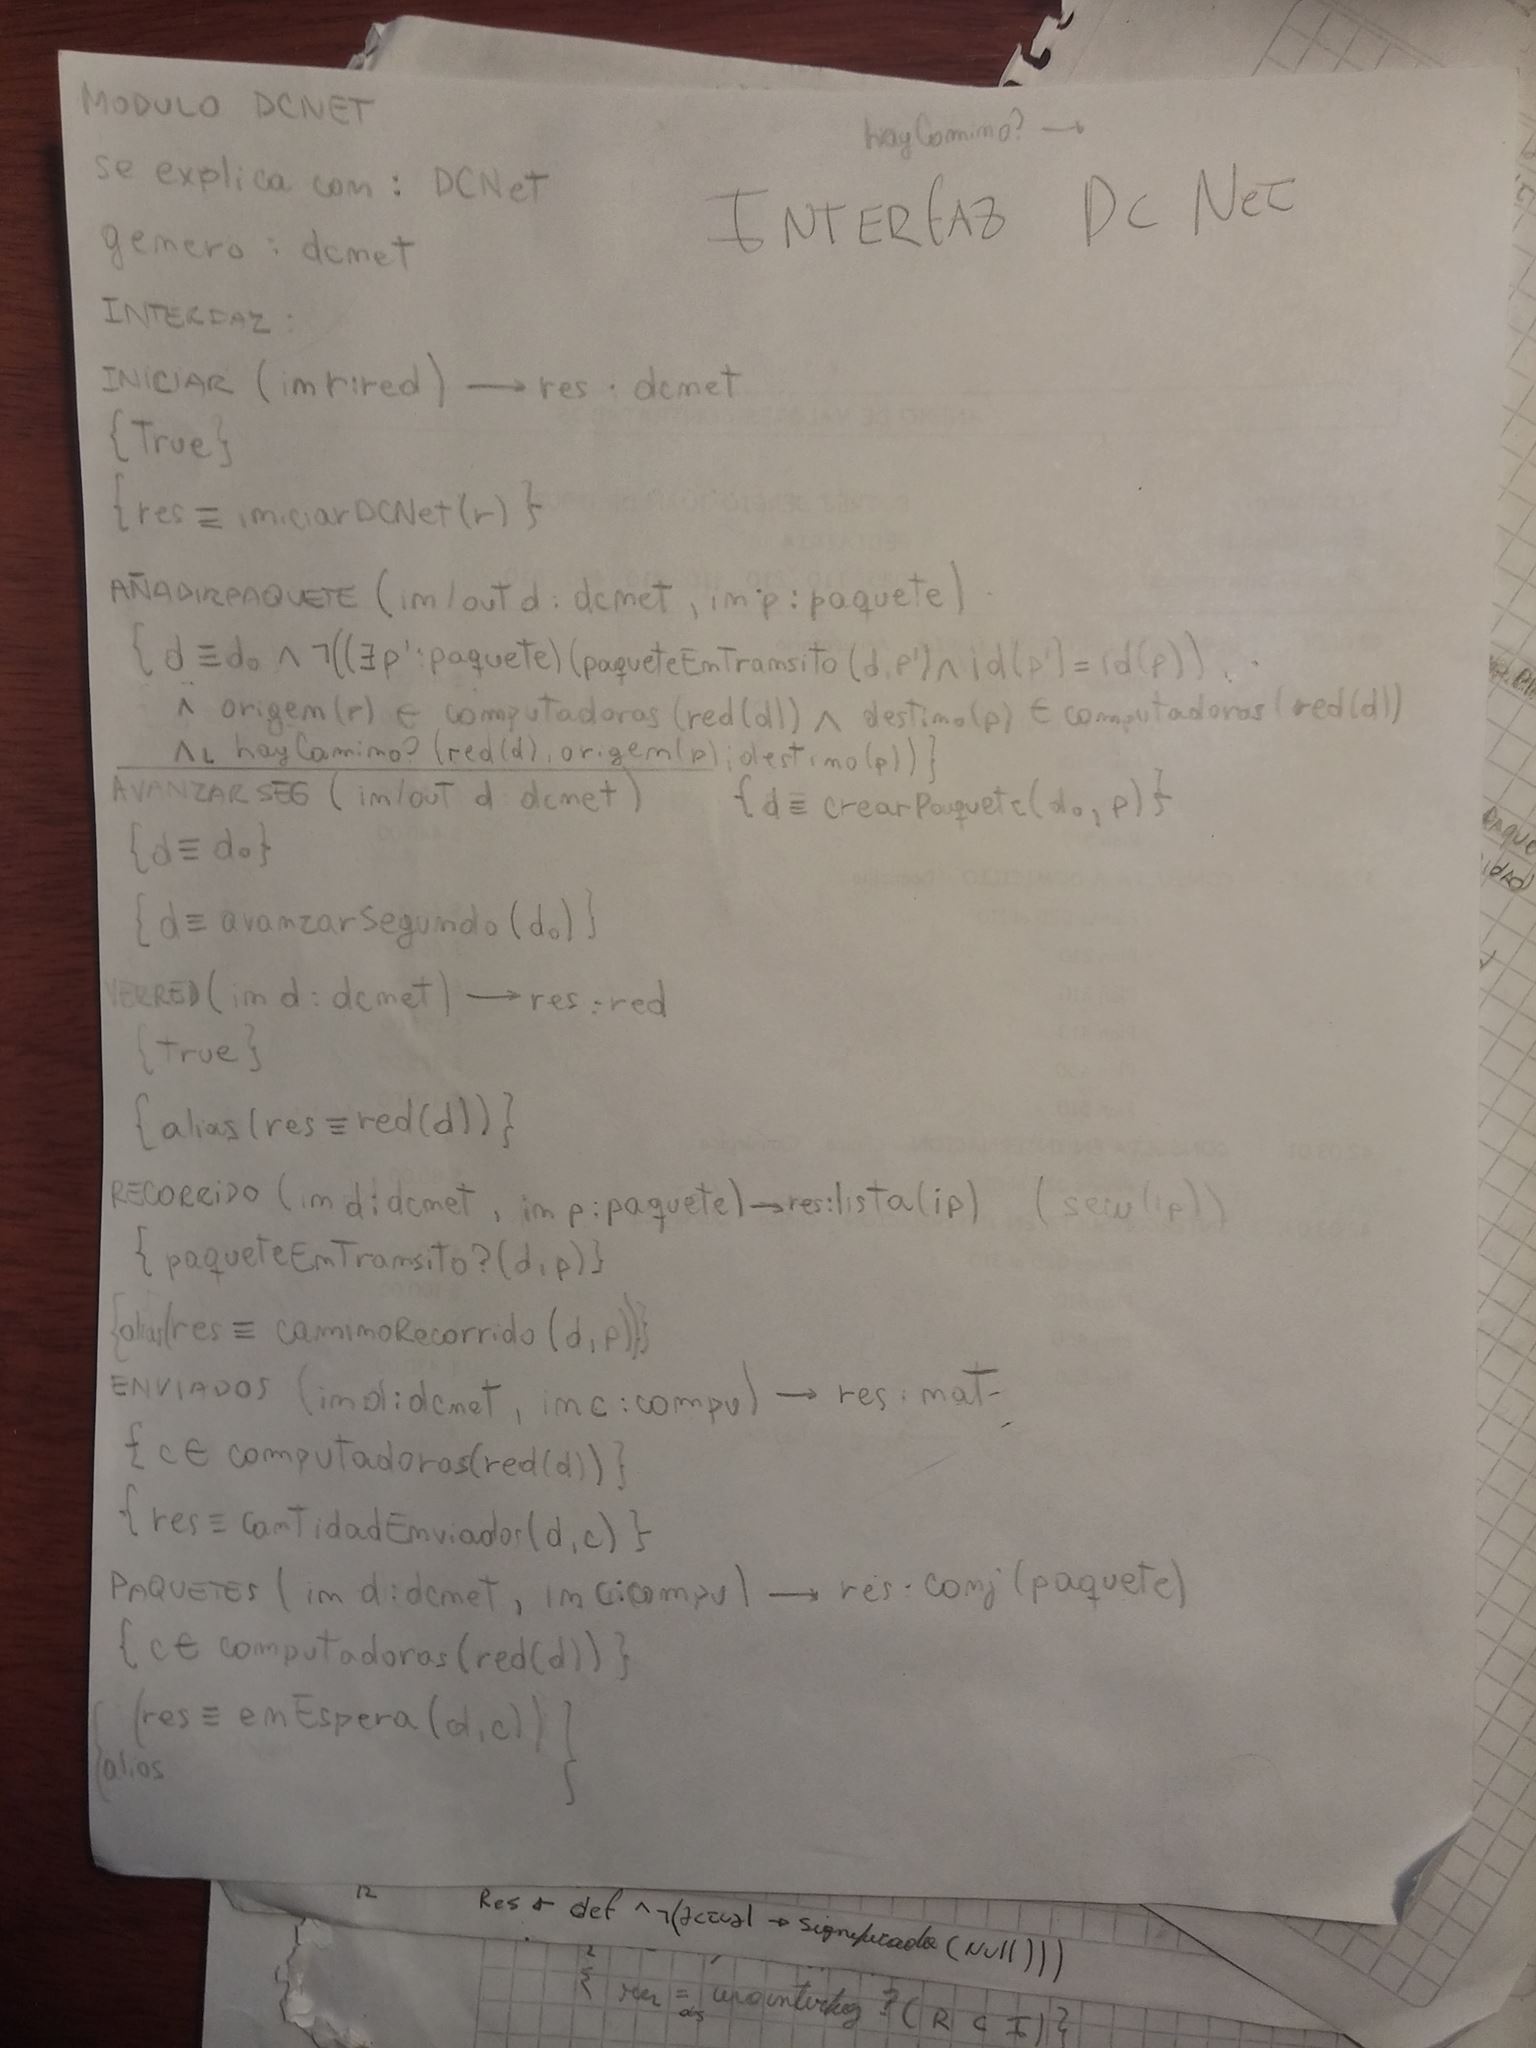 MODULO DCNET
hayCamino? →
se explica con: DCNet
INTERFAZ DC NET
genero: dcnet
INTERFAZ:
INICIAR (in r:red) → res: dcnet
{True}
{res ≡ iniciarDCNet(r)}
AÑADIRPAQUETE (in/out d: dcnet, in p: paquete)
{ d ≡ d₀ ∧ ¬((∃p':paquete)(paqueteEnTransito(d,p') ∧ id(p') = id(p))
∧ origen(p) ∈ computadoras(red(d)) ∧ destino(p) ∈ computadoras(red(d))
∧L hayCamino?(red(d), origen(p), destino(p))}
AVANZARSEG (in/out d: dcnet) {d ≡ crearPaquete(d₀, p)}
{d ≡ d₀}
{d ≡ avanzarSegundo(d₀)}
VERRED(in d: dcnet) → res: red
{true}
{alias(res ≡ red(d))}
RECORRIDO (in d:dcnet, in p:paquete) → res:lista(ip) (secu(ip))
{ paqueteEnTransito?(d,p)}
{alias(res ≡ caminoRecorrido(d,p))}
ENVIADOS (in d:dcnet, in c:compu) → res: nat
{ c ∈ computadoras(red(d))}
{res ≡ cantidadEnviados(d,c)}
PAQUETES (in d:dcnet, in c:compu) → res: conj(paquete)
{ c ∈ computadoras(red(d))}
(res ≡ enEspera(d,c)) }
{alias
Res ← def ∧ ¬(actual → significado (Null)))